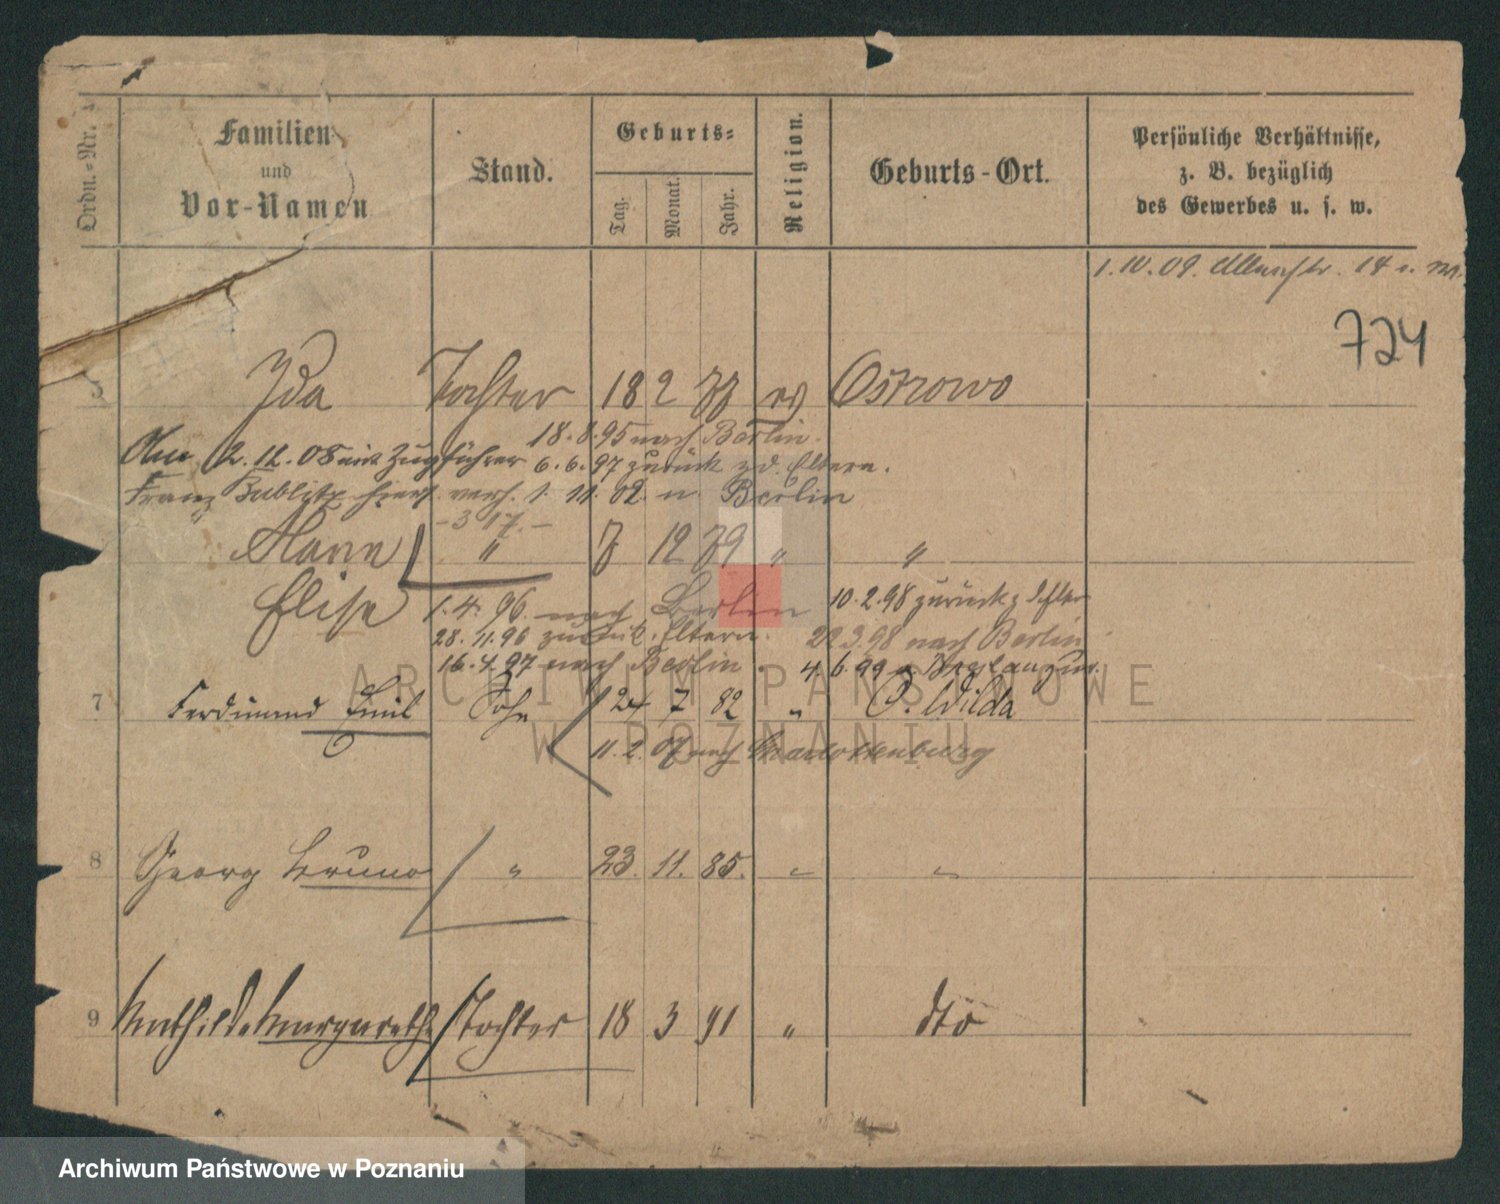 Ordn.-Nr.
Familien
und
Vor-Namen
Stand.
Geburts-
Tag.
Monat.
Jahr.
Religion.
Geburts-Ort.
Persönliche Verhältnisse,
z. B. bezüglich
des Gewerbes u. s. w.
1. 10. 09.
724
5 Ida Tochter 18 2 ev Ostrowo
18. 8. 95 nach Berlin.
2. 12. 08 mit Zugführer 6. 6. 97 zurück z. d. Eltern.
Franz Bublitz verh. 1. 11. 02 n. Berlin
12 79 " "
Elise 1. 4. 96 nach Berlin 10. 2. 98 zurück z d Eltern
28. 11. 96 zurück. Eltern. 22 3. 98 nach Berlin
16. 4. 97 nach Berlin. 4. 6. 99
7 Ferdinand Emil Sohn 24 7 82 " O. Wilda
11. 2. 07 nach Charlottenburg
8 Georg Bruno " 23. 11. 85. " "
9 Mathilde Margarethe Tochter 18 3 91 " dto
ARCHIWUM PAŃSTWOWE
W POZNANIU
Archiwum Państwowe w Poznaniu